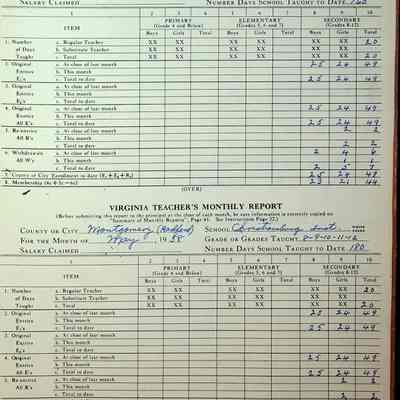 SALARY CLAIMED NUMBER DAYS SCHOOL TAUGHT TO DATE 160
1 2 3 4 5 6 7 8 9 10
ITEM PRIMARY ELEMENTARY SECONDARY
(Grade 4 and Below) (Grades 5, 6 and 7) (Grades 8-12)
Boys Girls Total Boys Girls Total Boys Girls Total
1. Number a. Regular Teacher XX XX XX XX XX XX 20
of Days b. Substitute Teacher XX XX XX XX XX XX
Taught c. Total XX XX XX XX XX XX 20
2. Original a. At close of last month 25 24 49
Entries b. This month
E₁'s c. Total to date 25 24 49
3. Original a. At close of last month
Entries b. This month
E₂'s c. Total to date
4. Original a. At close of last month 25 24 49
Entries b. This month
All E's c. Total to date 25 24 49
5. Re-entries a. At close of last month 2 2
All R's b. This month
c. Total to date 2 2
6. Withdrawals a. At close of last month 2 4 6
All W's b. This month 1 1
c. Total to date 2 5 7
7. County or City Enrollment to date (E₁+E₂+R₂) 25 24 49
8. Membership (4c+5c-6c) 23 21 44
(OVER)
VIRGINIA TEACHER'S MONTHLY REPORT
(Before submitting this report to the principal at the close of each month, be sure information is correctly copied on
"Summary of Monthly Reports", Page 41. See Instructions Page 32.)
COUNTY OR CITY Montgomery (Radford) SCHOOL Christiansburg Inst.
FOR THE MONTH OF May, 1958 GRADE OR GRADES TAUGHT 8-9-10-11-12
SALARY CLAIMED NUMBER DAYS SCHOOL TAUGHT TO DATE 180
1 2 3 4 5 6 7 8 9 10
ITEM PRIMARY ELEMENTARY SECONDARY
(Grade 4 and Below) (Grades 5, 6 and 7) (Grades 8-12)
Boys Girls Total Boys Girls Total Boys Girls Total
1. Number a. Regular Teacher XX XX XX XX XX XX 20
of Days b. Substitute Teacher XX XX XX XX XX XX
Taught c. Total XX XX XX XX XX XX 20
2. Original a. At close of last month 25 24 49
Entries b. This month
E₁'s c. Total to date 25 24 49
3. Original a. At close of last month
Entries b. This month
E₂'s c. Total to date
4. Original a. At close of last month 25 24 49
Entries b. This month
All E's c. Total to date 25 24 49
5. Re-entries a. At close of last month 2 2
All R's b. This month
c. Total to date 2 2